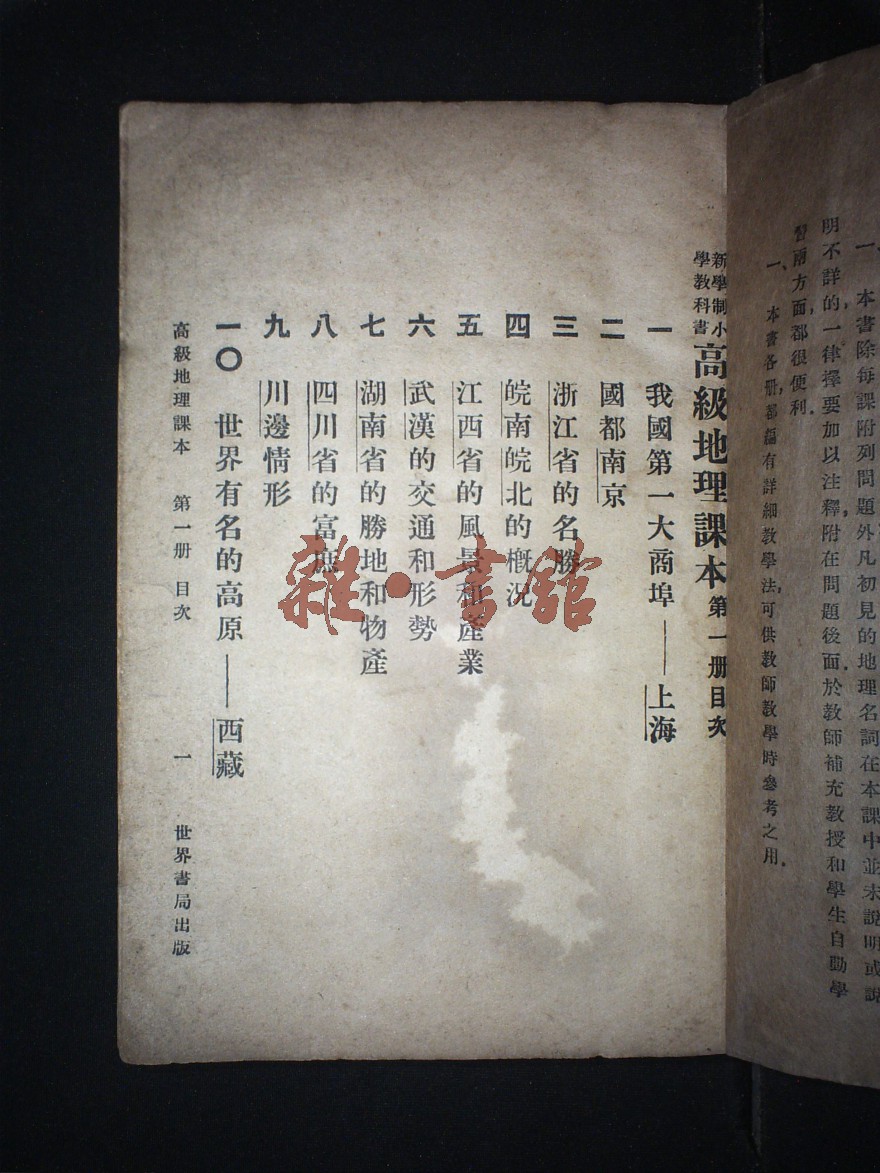 一、本書除每課附列問題外凡初見的地理名詞在本課中並未說明或說
明不詳的一律擇要加以注釋附在問題後面於教師補充教授和學生自動學
習兩方面都很便利．
一、本書各册，都編有詳細教學法，可供教師教學時參考之用．
新學制小學教科書高級地理課本第一册目次
一　我國第一大商埠——上海
二　國都南京
三　浙江省的名勝
四　皖南皖北的槪況
五　江西省的風景和產業
六　武漢的交通和形勢
七　湖南省的勝地和物產
八　四川省的富庶
九　川邊情形
一〇　世界有名的高原——西藏
高級地理課本　第一册　目次　一　世界書局出版
雜·書館